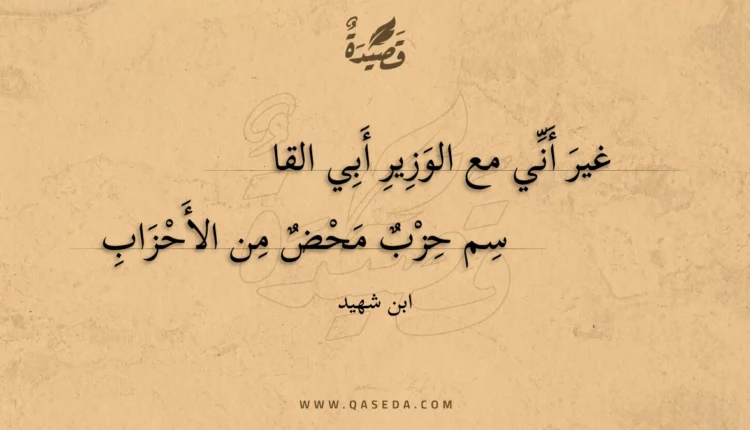 قَصِيدَةٌ
غيرَ أَنِّي مع الوَزِيرِ أَبِي القا
سِم حِزْبٌ مَحْضٌ مِن الأَحْزَابِ
ابن شهيد
WWW.QASEDA.COM